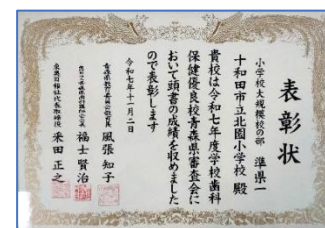 表彰状
小学校大規模校の部 準県一
十和田市立北園小学校 殿
貴校は令和七年度学校歯科
保健優良校青森県審査会に
おいて頭書の成績を収めました
ので表彰します
令和七年十一月二日
青森県教育委員会教育長 風張知子
福士賢治
東奥日報社代表取締役 来田正之